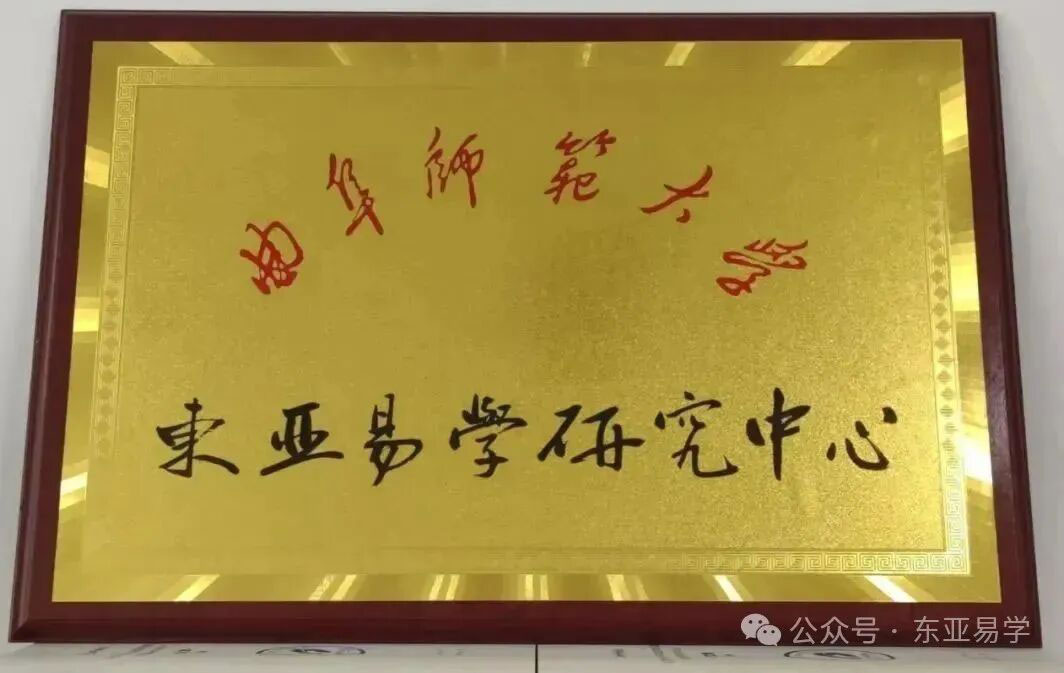 曲阜師範大學
東亚易學研究中心
公众号·东亚易学